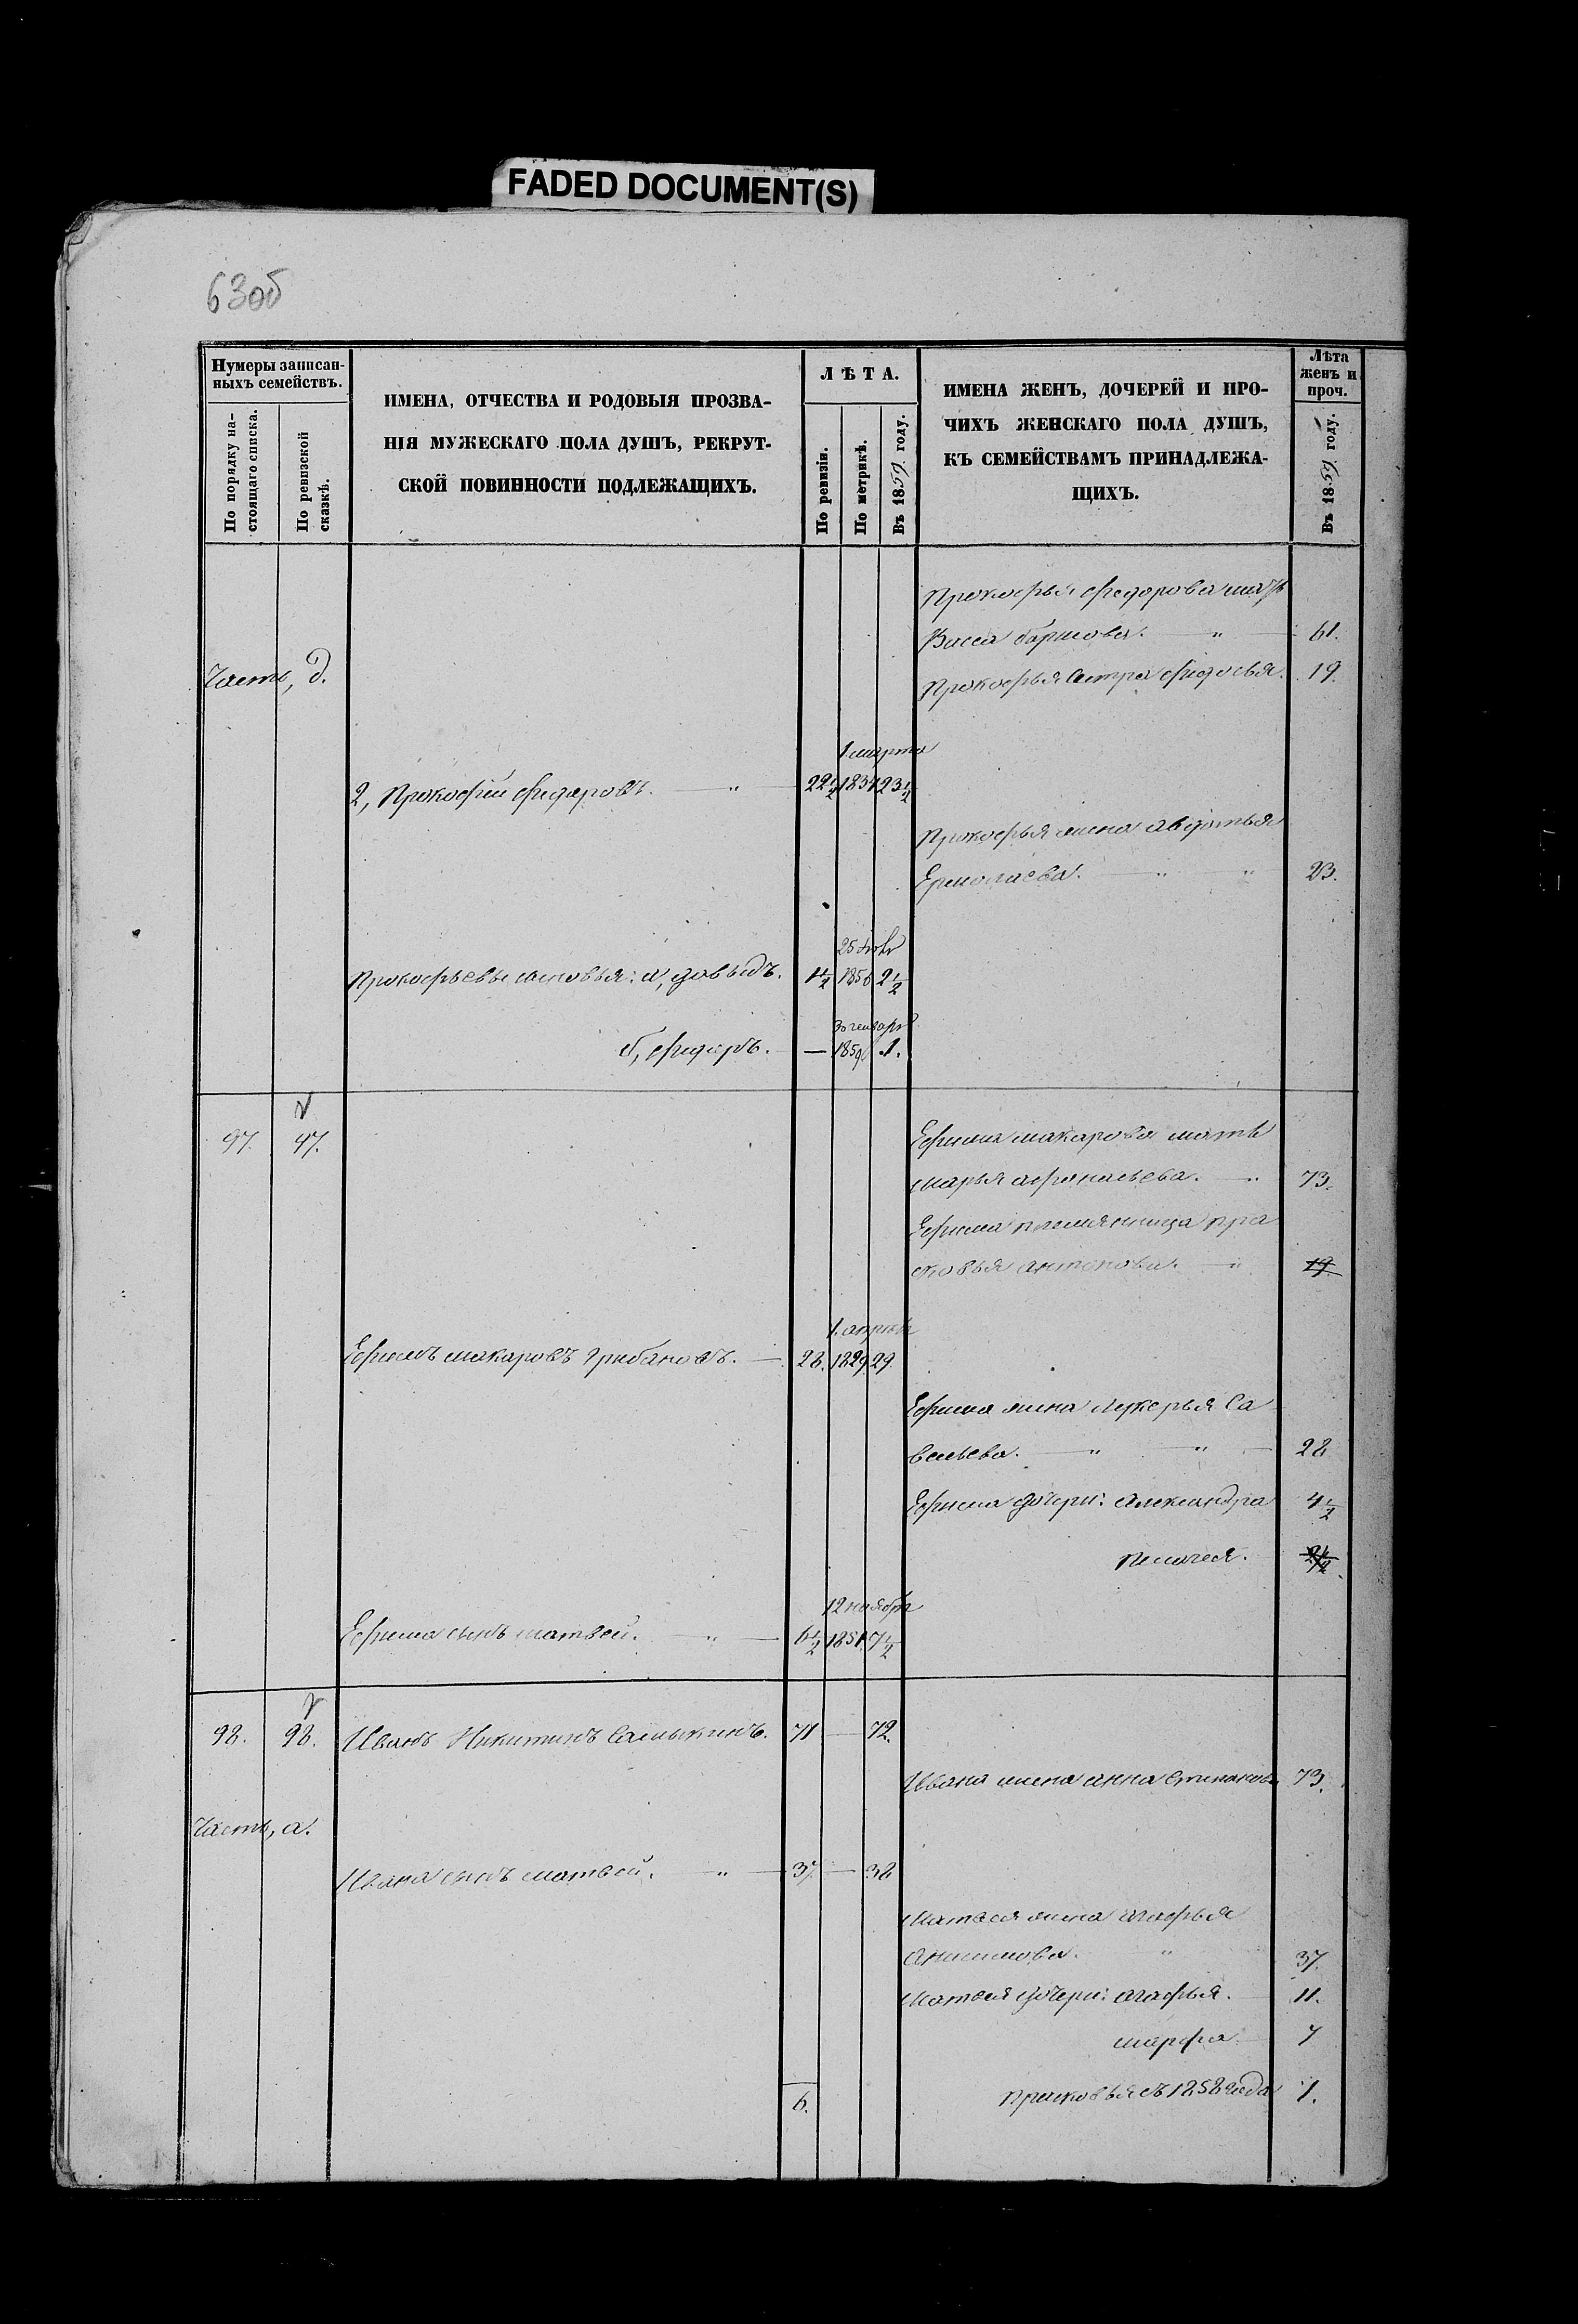 FADED DOCUMENT(S)
63об
Нумеры записан-
ныхъ семействъ.
По порядку на-
стоящаго списка.
По ревизской
сказкѣ.
ИМЕНА, ОТЧЕСТВА И РОДОВЫЯ ПРОЗВА-
НІЯ МУЖЕСКАГО ПОЛА ДУШЪ, РЕКРУТ-
СКОЙ ПОВИННОСТИ ПОДЛЕЖАЩИХЪ.
ЛѢТА.
По ревизіи.
По метрикѣ.
Въ 1859 году.
ИМЕНА ЖЕНЪ, ДОЧЕРЕЙ И ПРО-
ЧИХЪ ЖЕНСКАГО ПОЛА ДУШЪ,
КЪ СЕМЕЙСТВАМЪ ПРИНАДЛЕЖА-
ЩИХЪ.
Лѣта
женъ и
проч.
Въ 1859 году.
Прокофья Федорова мать
Васса 61.
Часть, д.
Прокофья сестра Федосья. 19.
1 марта
2, Прокофій Федоровъ. " 22½ 23½
Прокофья жена Авдотья
Ермолаева. " " 23.
Прокофьевы сыновья: а, Давыдъ. 1½ 1856 2½
30 генваря
б, Федоръ. — 1859 1.
97. 47. Ефима Макарова мать
Марья Афонасьева. " 73.
Ефима племянница Пра
сковья Антонова. " 19
1. апрѣля
Ефимъ Макаровъ Грибановъ. 28. 1829 29.
Ефима жена Лукерья Са
вельева. " " 28
Ефима дочери: Александра 4½
Пелагея.
12 ноября
Ефима сынъ Матвей. " 6½ 1851 7½
98. 98. Иванъ Никитинъ Самыкинъ. 71 — 72.
Ивана жена Анна Степанова 73.
Часть, а.
Ивана сынъ Матвей. " 37. — 38
Матвея жена Агафья
Анисимова. " 37.
Матвея дочери: Агафья. 11.
Марфа 7
6. Прасковья съ 1858 года 1.